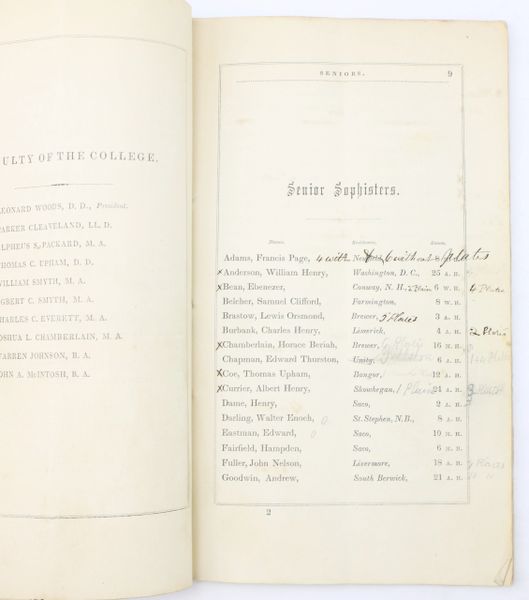 ULTY OF THE COLLEGE.
LEONARD WOODS, D. D., President.
PARKER CLEAVELAND, LL. D.
ALPHEUS S. PACKARD, M. A.
THOMAS C. UPHAM, D. D.
WILLIAM SMYTH, M. A.
EGBERT C. SMYTH, M. A.
CHARLES C. EVERETT, M. A.
JOSHUA L. CHAMBERLAIN, M. A.
WARREN JOHNSON, B. A.
JOHN A. McINTOSH, B. A.
SENIORS. 9
Senior Sophisters.
Names. Residence. Rooms.
Adams, Francis Page, 4 with 6 without Plates
x Anderson, William Henry, Washington, D. C., 25 A. H.
x Bean, Ebenezer, Conway, N. H., 6 W. H.
Belcher, Samuel Clifford, Farmington, 8 W. H.
Brastow, Lewis Orsmond, Brewer, 3 A. H.
Burbank, Charles Henry, Limerick, 4 A. H.
x Chamberlain, Horace Beriah, Brewer,
Chapman, Edward Thurston, Unity,
x Coe, Thomas Upham, Bangor, 12 A. H.
x Currier, Albert Henry, Skowhegan, 24 A. H.
Dame, Henry, Saco, 2 A. H.
Darling, Walter Enoch, 0 St. Stephen, N. B., 8 A. H.
Eastman, Edward, 0 Saco, 19 M. H.
Fairfield, Hampden, Saco, 6 M. H.
Fuller, John Nelson, Livermore, 18 A. H.
Goodwin, Andrew, South Berwick, 21 A. H.
2